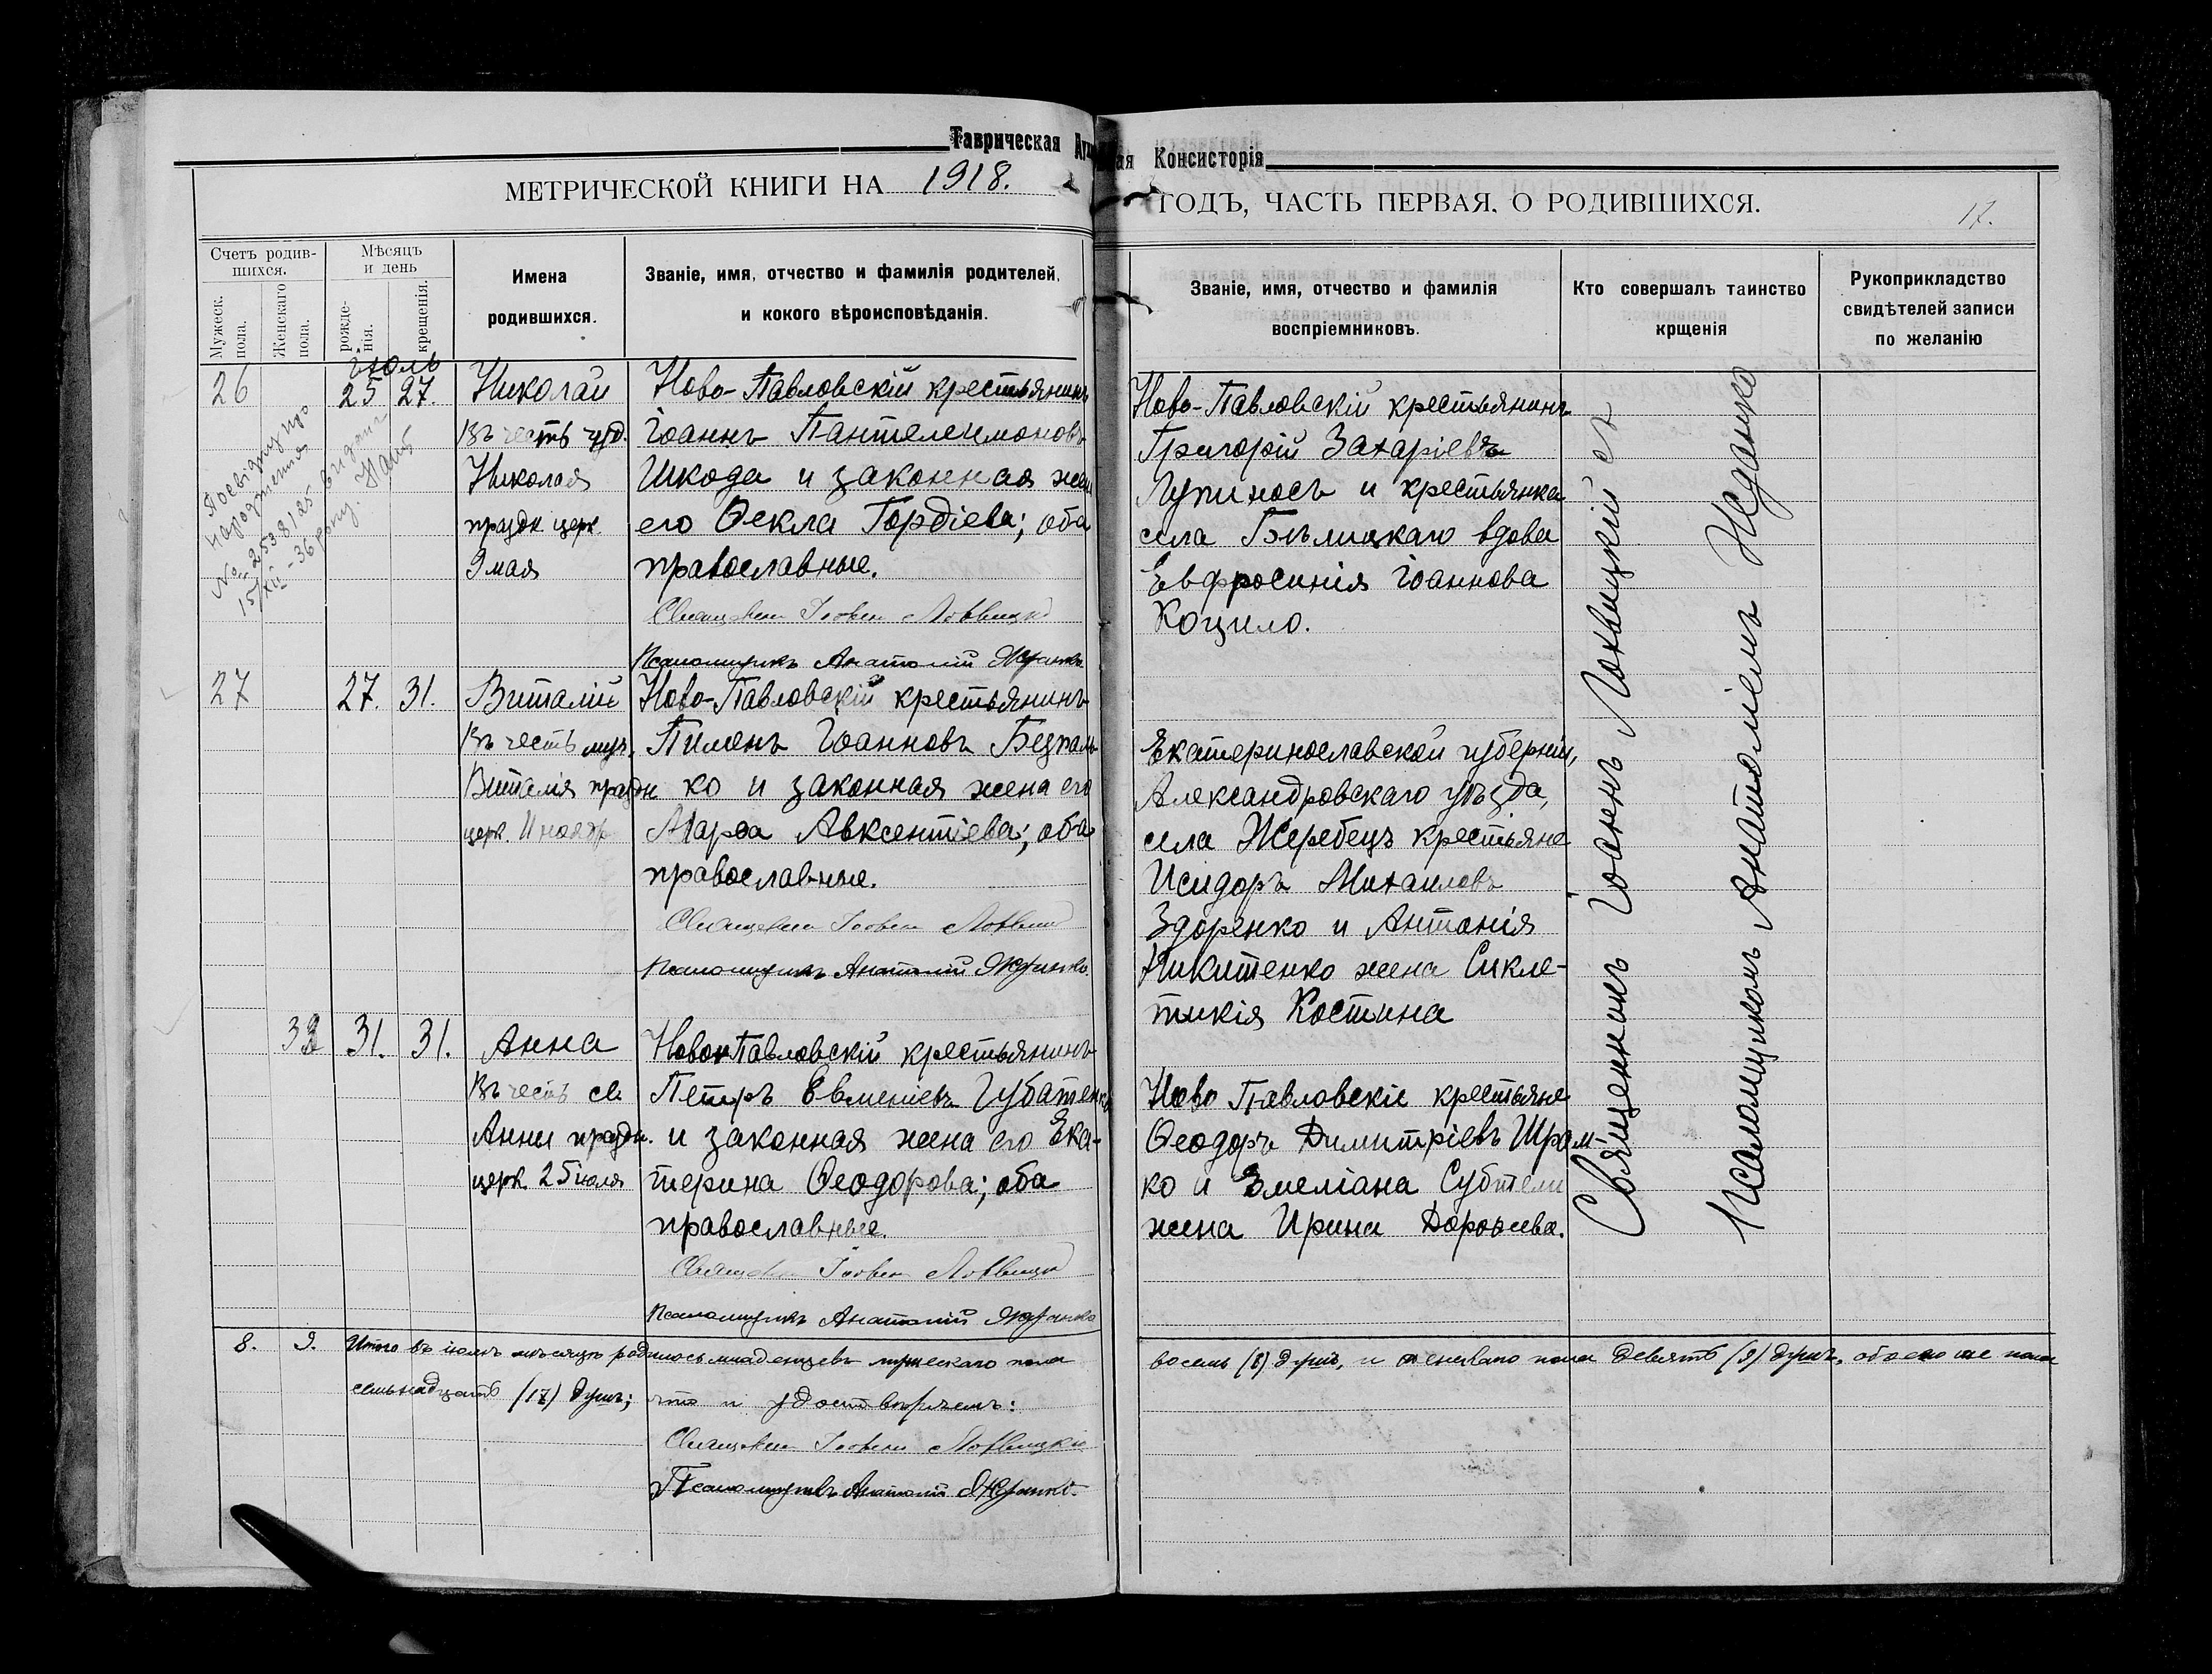 Таврическая
Консисторія
МЕТРИЧЕСКОЙ КНИГИ НА 1918.
ГОДЪ, ЧАСТЬ ПЕРВАЯ, О РОДИВШИХСЯ.
17.
Счетъ родив-
шихся.
Мужеск.
пола.
Женскаго
пола.
Мѣсяцъ
и день
рожде-
нія.
крещенія.
Имена
родившихся.
Званіе, имя, отчество и фамилія родителей,
и кокого вѣроисповѣданія.
Званіе, имя, отчество и фамилія
воспріемниковъ.
Кто совершалъ таинство
крщенія
Рукоприкладство
свидѣтелей записи
по желанію
Іюль
26
25 27.
Николай
Въ честь чуд.
Николая
праздн церк
9 мая
Ново-Павловскій крестьянинъ
Іоаннъ Пантелеимоновъ
Шкода и законная жена
его Ѳекла Гордіева; оба
православные.
Псаломщикъ Анатолій
Ново-Павловскій крестьянинъ
Григорій Захаріевъ
Лупиносъ и крестьянка
села Бѣлицкаго вдова
Евфросинія Іоаннова
Коцило.
посвідку про
народження
№ 2538/25 видано
15/XII - 36 року.
27
27. 31.
Виталій
Въ честь муч.
Виталія праздн
церк.
Ново-Павловскій крестьянинъ
Пименъ Іоанновъ Безпаль
ко и законная жена его
Марѳа Авксентіева; оба
православные.
Псаломщикъ Анатолій
Екатеринославской губерніи,
Александровскаго уѣзда,
села Жеребецъ крестьяне
Исидоръ Михаиловъ
Здоренко и Антонія
Никитенко жена Синкле-
тикія Костина
33
31. 31.
Анна
Въ честь св.
Анны праздн.
церк. 25 іюля
Ново Павловскій крестьянинъ
Петръ Евменіевъ Губатенко
и законная жена его Ека-
терина Ѳеодорова; оба
православные.
Псаломщикъ Анатолій
Ново Павловскіе крестьяне
Ѳеодоръ Димитріевъ Шрам-
ко и Емеліана Субтели
жена Ирина Дороѳеева.
Священникъ Іоаннъ Лохвицкій съ
Псаломщикомъ Анатоліемъ
8. 9. Итого въ іюлѣ мѣсяцѣ родилось младенцевъ мужескаго пола
восемь (8) душъ, и женскаго пола девять (9) душъ, обоего же пола
семьнадцать (17) душъ; что и удостовѣряемъ:
Псаломщикъ Анатолій